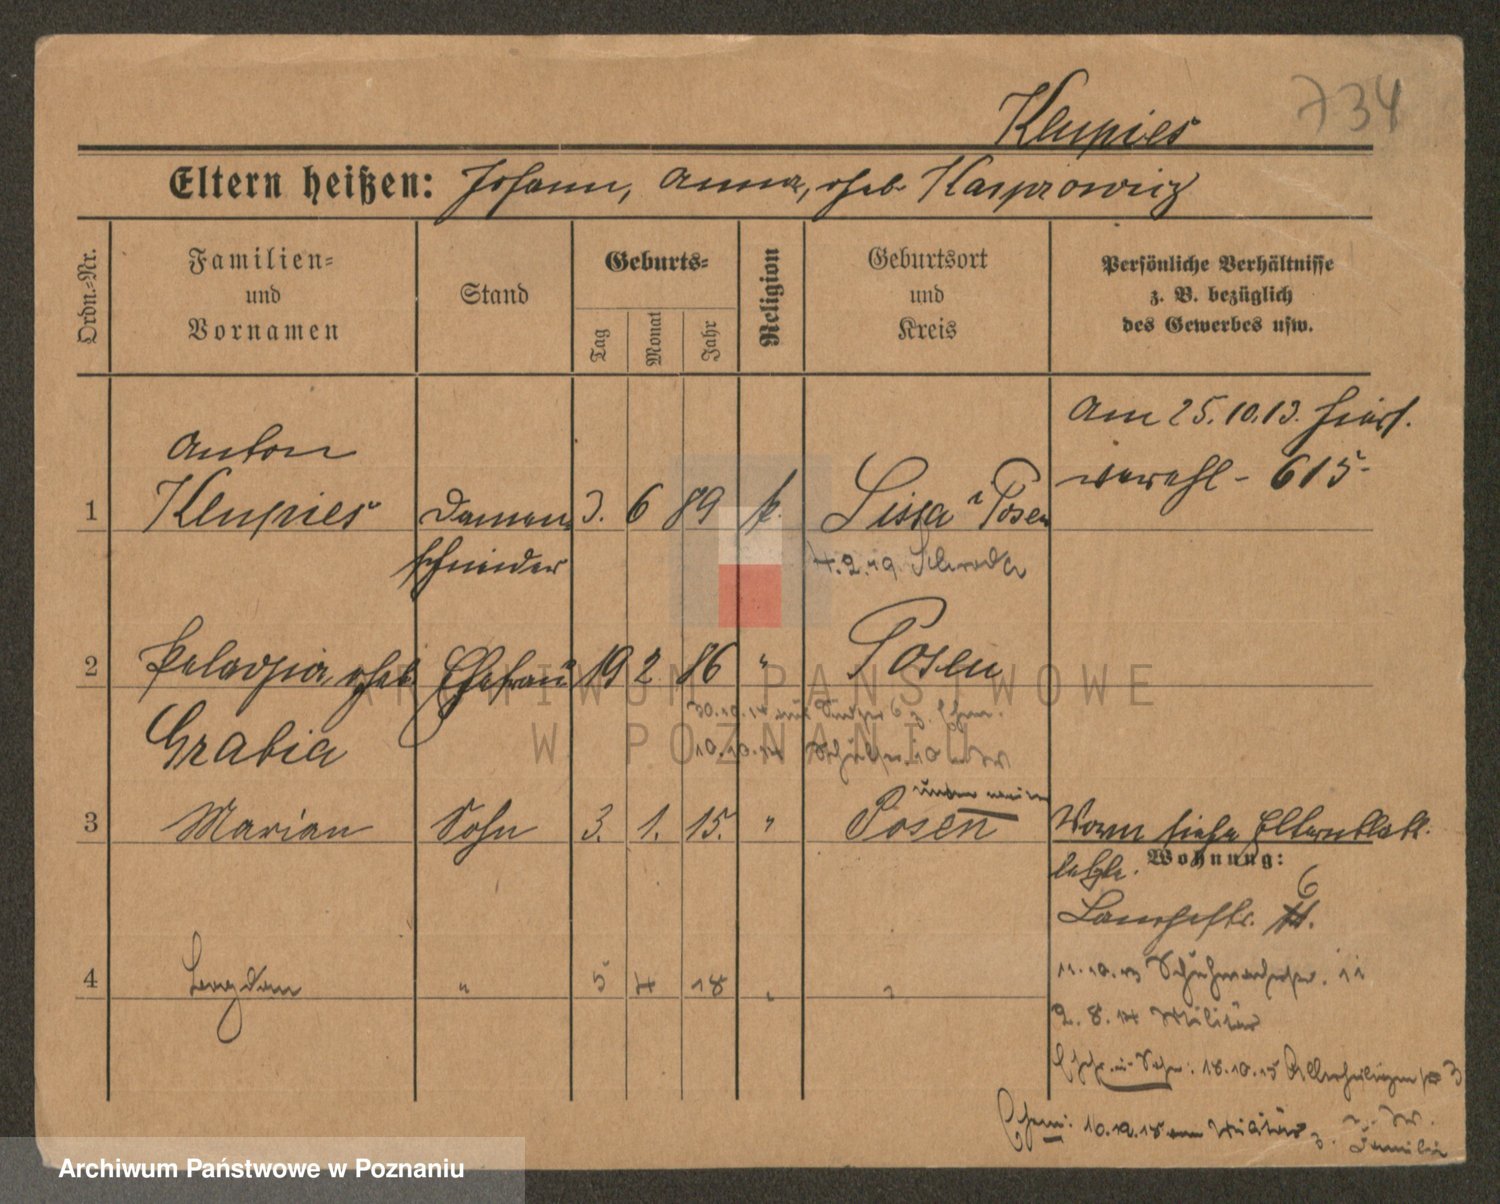 734
Klupies
Eltern heißen: Johann, Anna, geb. Kasprowicz
Ordn.-Nr.
Familien-
und
Vornamen
Stand
Geburts-
Tag
Monat
Jahr
Religion
Geburtsort
und
Kreis
Persönliche Verhältnisse
z. B. bezüglich
des Gewerbes usw.
Am 25.10.13.
615
Anton
1 Klupies Damen 3. 6 89 k. Lissa i Posen
schneider 4.2.19. Schroda
2 Pelagia geb. Ehefrau 19 2 86 " Posen
Grabia
30.10.14
10.10.14
3 Marian Sohn 3. 1. 15. " Posen
Vorm siehe Elternblatt.
letzte.
Wohnung:
6
11.10.13 Schuhmacherstr. 11
2.8.14 Militär
4 Bogdan " 5 4 18 " "
Ehefr. u. Sohn: 18.10.15 Allerheiligen 3
Ehem: 10.12.18 vom Militär z. Familie
ARCHIWUM PAŃSTWOWE
W POZNANIU
Archiwum Państwowe w Poznaniu